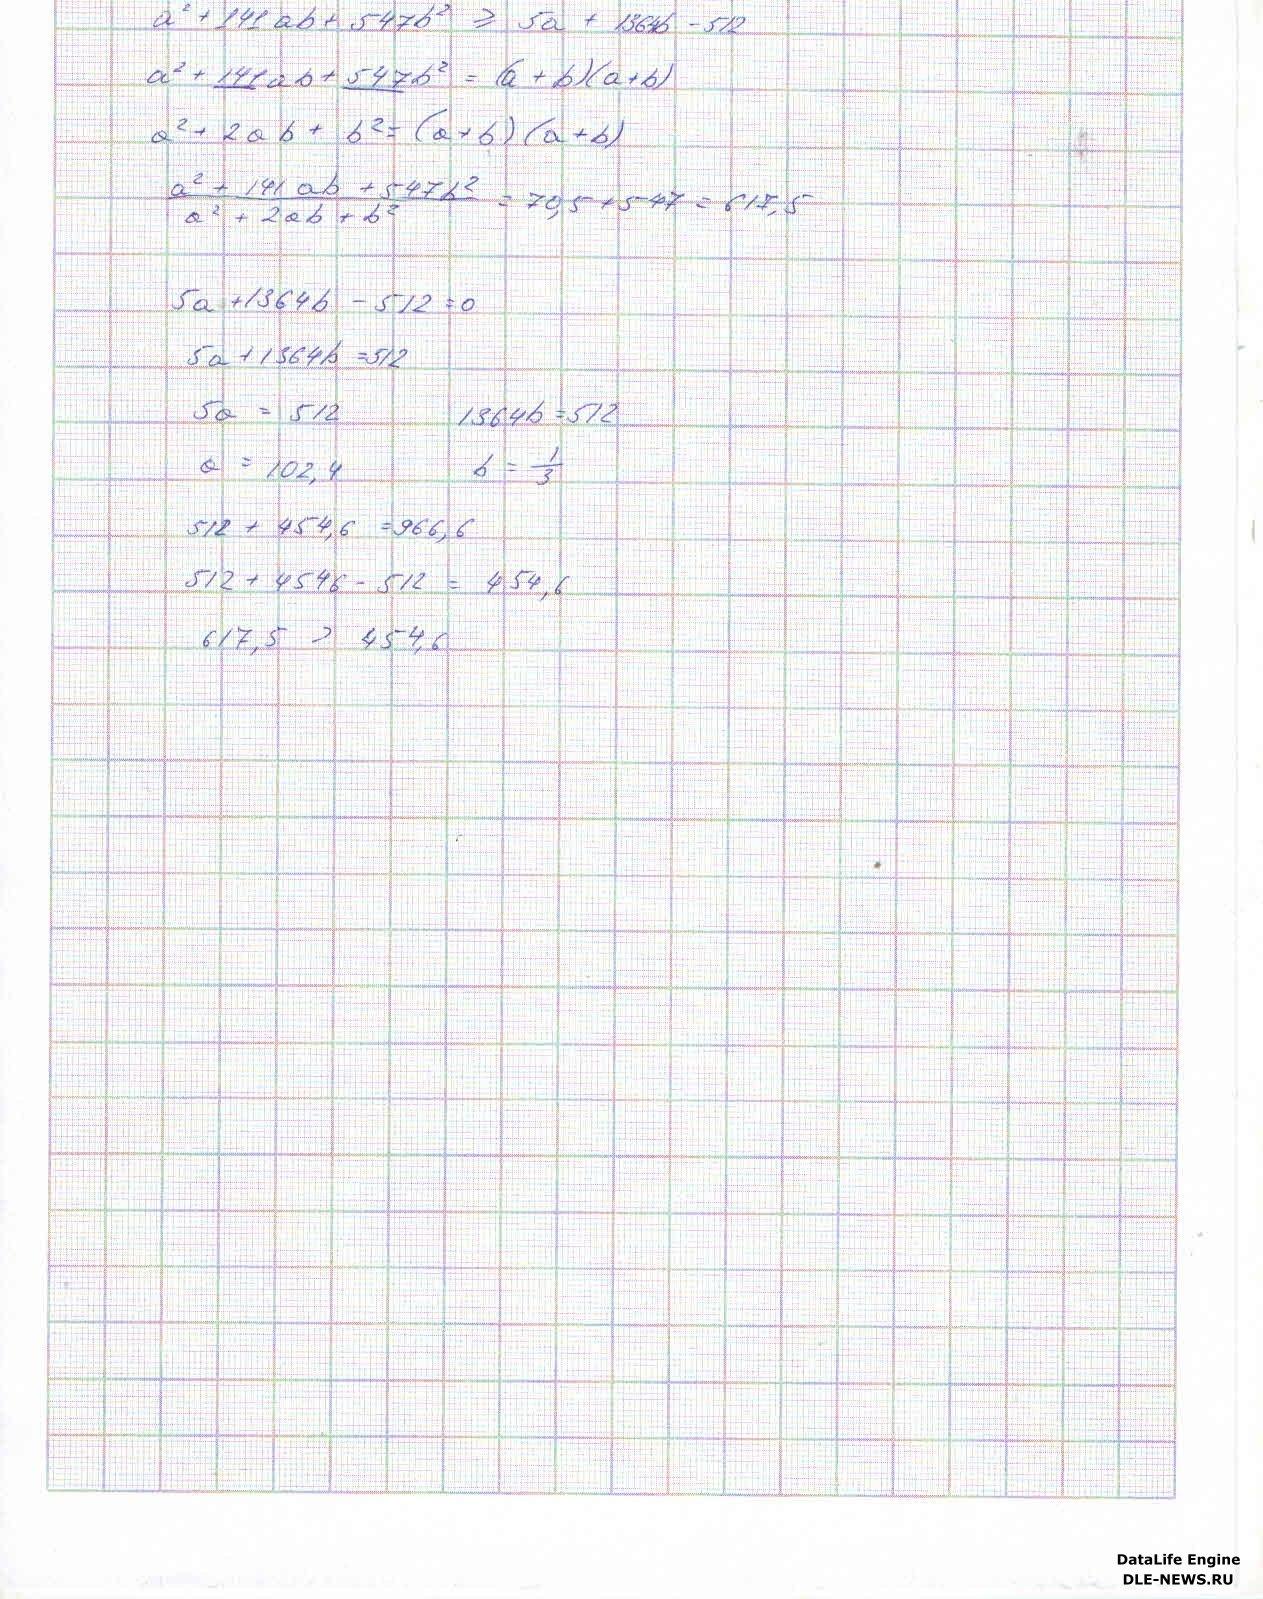 a² + 141ab + 547b² ≥ 5a + 1364b - 512
a² + 141ab + 547b² = (a + b)(a + b)
a² + 2ab + b² = (a + b)(a + b)
a² + 141ab + 547b² / a² + 2ab + b² = 70,5 + 547 = 617,5
5a + 1364b - 512 = 0
5a + 1364b = 512
5a = 512 1364b = 512
a = 102,4 b = 1/3
512 + 454,6 = 966,6
512 + 4546 - 512 = 454,6
617,5 > 454,6
DataLife Engine
DLE-NEWS.RU